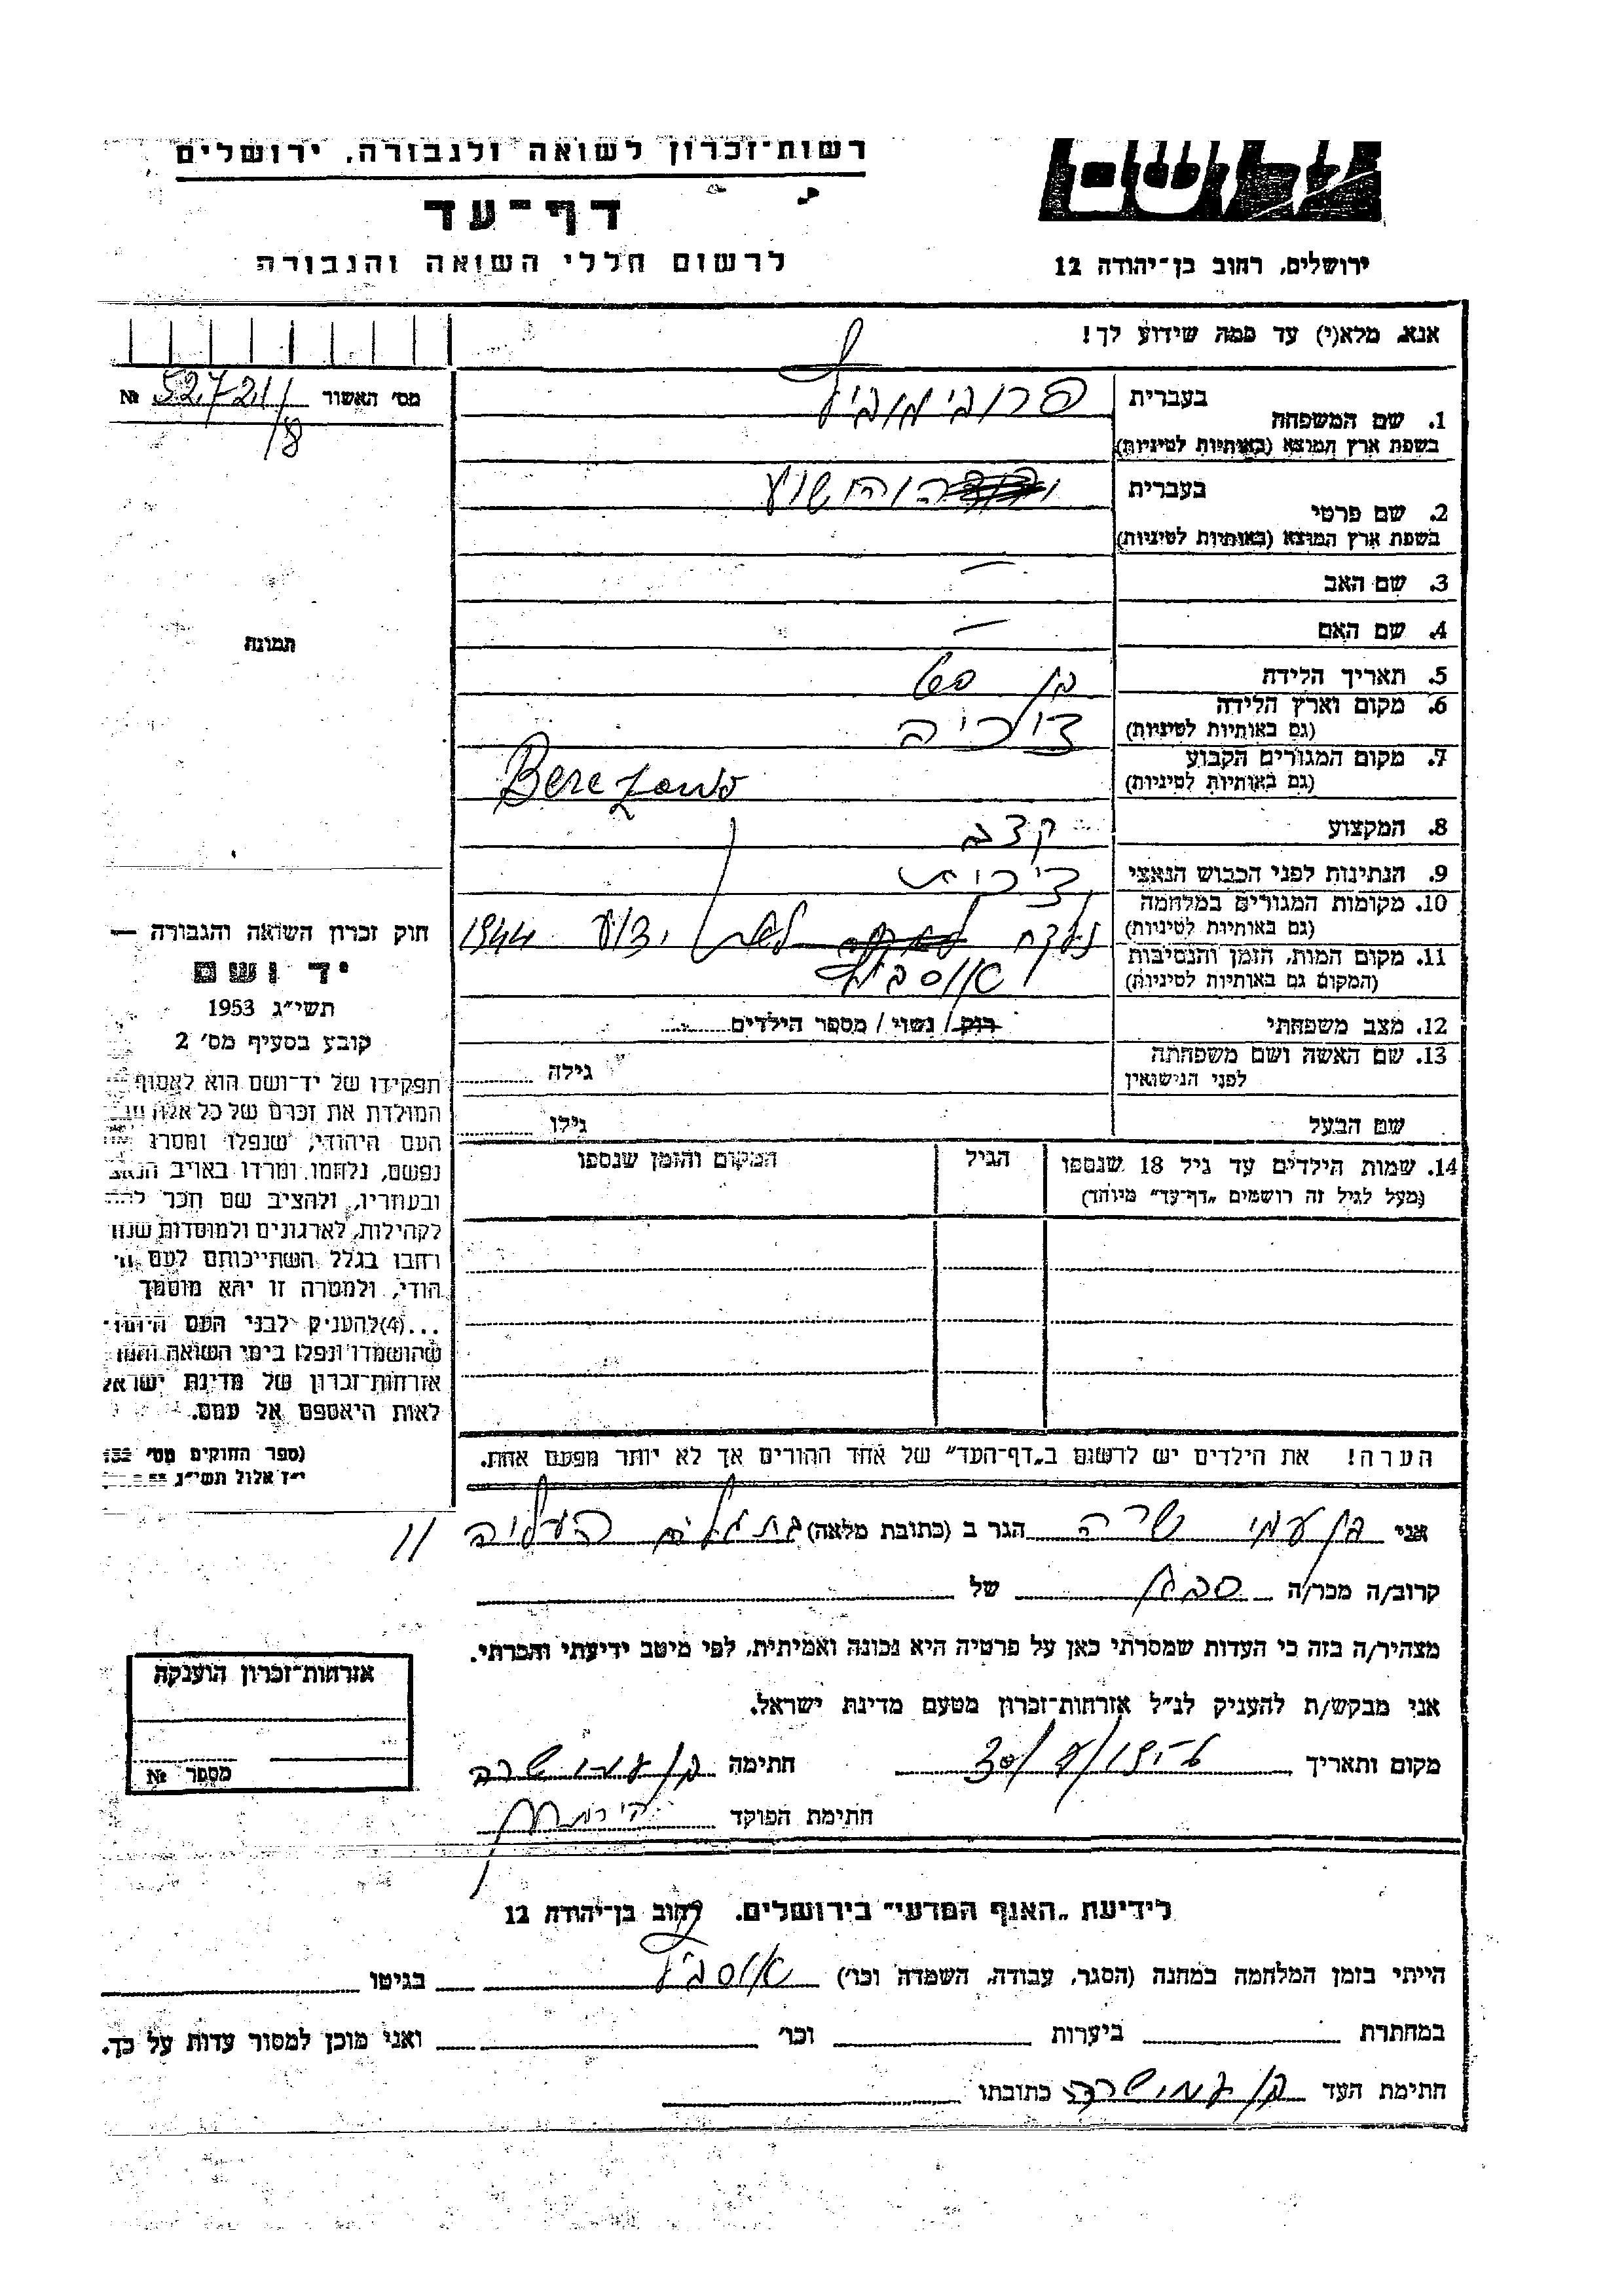 רשות־זכרון לשואה ולגבורה, ירושלים
דף־עד
לרשום חללי השואה והגבורה
יד ושם
ירושלים, רחוב בן־יהודה 12
אנא, מלא(י) עד כמה שידוע לך!
מס' האשור № 52721/8
1. שם המשפחה
בעברית
בשפת ארץ המוצא (באותיות לטיניות)
2. שם פרטי
בעברית
בשפת ארץ המוצא (באותיות לטיניות)
3. שם האב –
4. שם האם –
5. תאריך הלידה בן 60
6. מקום וארץ הלידה
(גם באותיות לטיניות)
7. מקום המגורים הקבוע
(גם באותיות לטיניות)
8. המקצוע קצב
9. הנתינות לפני הכבוש הנאצי
10. מקומות המגורים במלחמה
(גם באותיות לטיניות)
1944
11. מקום המות, הזמן והנסיבות
(המקום גם באותיות לטיניות)
12. מצב משפחתי רוק / נשוי / מספר הילדים
13. שם האשה ושם משפחתה
לפני הנישואין
גילה
שם הבעל גילו
14. שמות הילדים עד גיל 18 שנספו
(מעל לגיל זה רושמים „דף־עד" מיוחד)
הגיל
המקום והזמן שנספו
הערה! את הילדים יש לרשום ב„דף־העד" של אחד ההורים אך לא יותר מפעם אחת.
תמונה
חוק זכרון השואה והגבורה —
יד ושם
תשי"ג 1953
קובע בסעיף מס' 2
תפקידו של יד־ושם הוא לאסוף
המולדת את זכרם של כל אלה
העם היהודי, שנפלו ומסרו
נפשם, נלחמו ומרדו באויב
ובעוזריו, ולהציב שם וזכר
לקהילות, לארגונים ולמוסדות
בגלל השתייכותם לעם
הודי, ולמטרה זו יהא מוסמך
...(4)להעניק לבני העם
שהושמדו ונפלו בימי השואה
אזרחות־זכרון של מדינת
לאות היאספם אל עמם.
(ספר החוקים מס'
י"ז אלול תשי"ג
אני בן עמי שרה הגר ב (כתובת מלאה) בת גלים העליה 11
קרוב/ה מכר/ה של
מצהיר/ה בזה כי העדות שמסרתי כאן על פרטיה היא נכונה ואמיתית, לפי מיטב ידיעתי והכרתי.
אני מבקש/ת להעניק לנ"ל אזרחות־זכרון מטעם מדינת ישראל.
מקום ותאריך חתימה בן עמי שרה
חתימת הפוקד
אזרחות־זכרון הוענקה
מספר №
לידיעת „האגף המדעי" בירושלים, רחוב בן־יהודה 12
הייתי בזמן המלחמה במחנה (הסגר, עבודה, השמדה וכו') בגיטו
במחתרת ביערות וכו' ואני מוכן למסור עדות על כך.
חתימת העד בן עמי שרה כתובתו